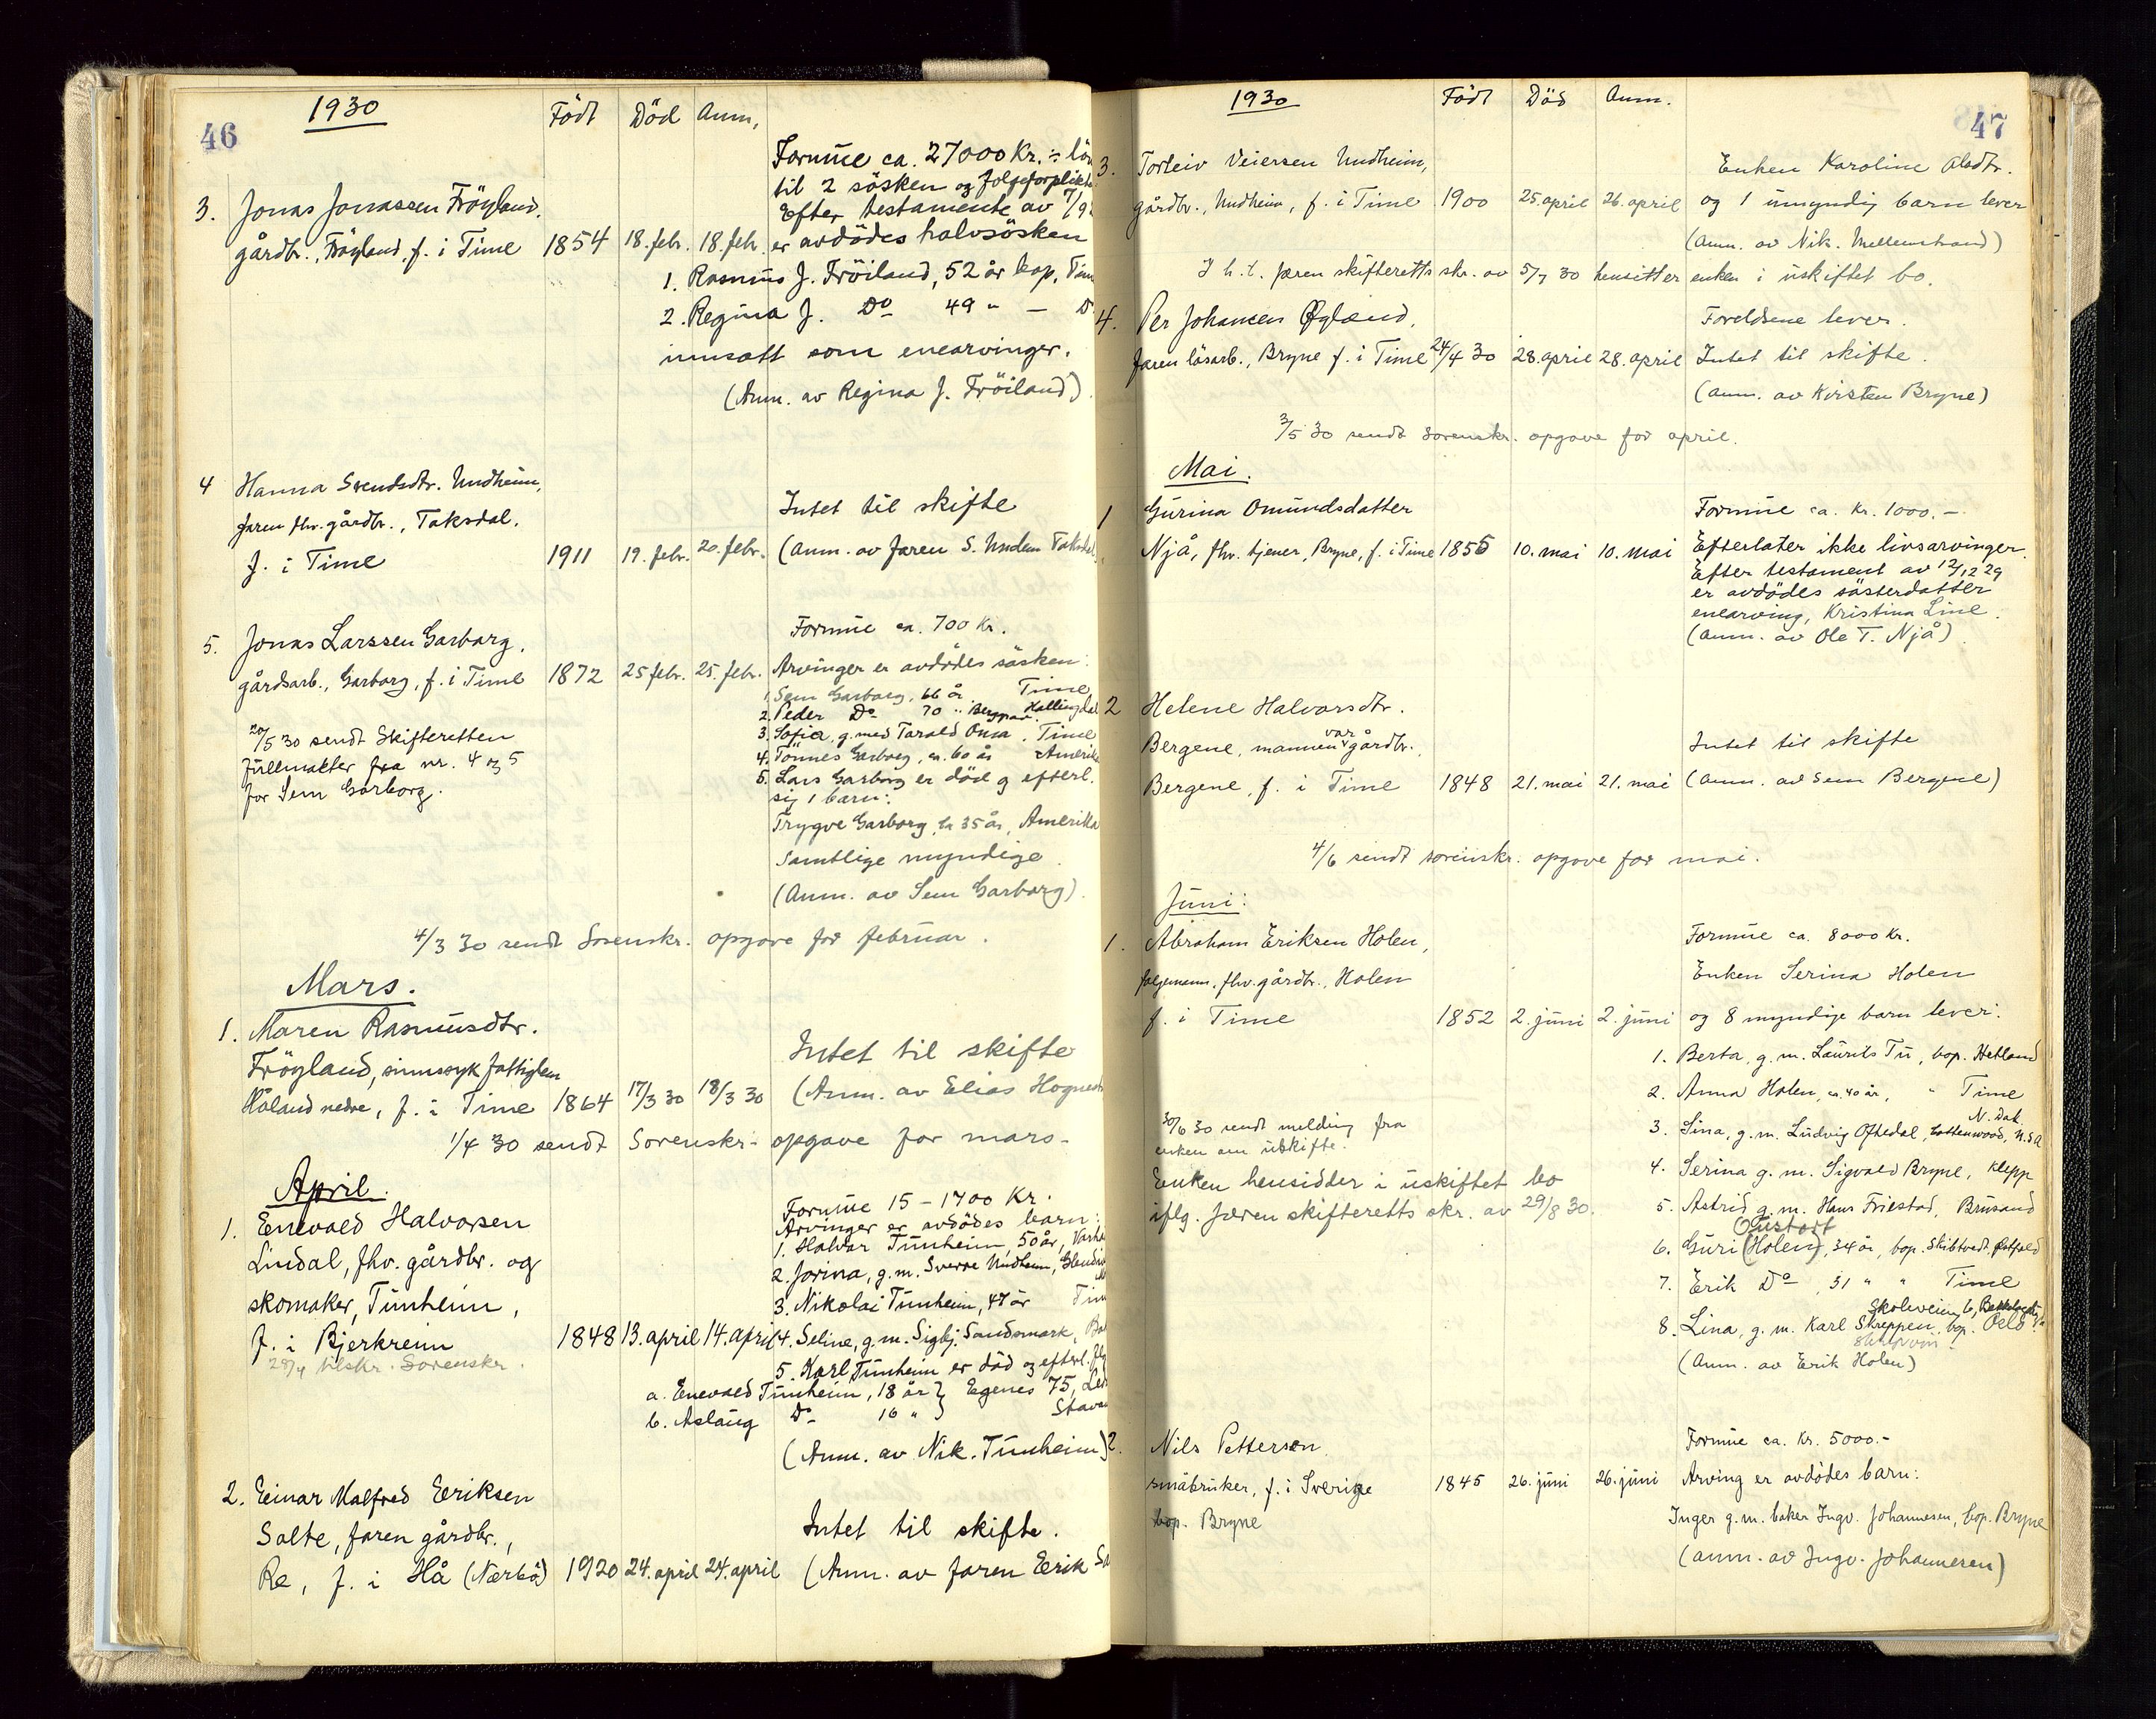 46
1930
Födt Död Anm,
Formue ca. 27000 Kr. ÷
til 2 søsken og
Efter testamente av
3. Jonas Jonassen Fröyland.
gårdbr., Fröyland, f. i Time 1854 18. febr. 18. febr. er avdödes halvsösken
1. Rasmus J. Fröiland, 52 år bop.
2. Regina J. Do 49 " —
innsatt som enearvinger.
(Anm. av Regina J. Fröiland)
4 Hanna Svendsdtr. Undheim,
faren fhv. gårdbr., Taksdal. Intet til skifte
f. i Time 1911 19. febr. 20. febr. (Anm. av faren S. Undem
5. Jonas Larssen Garborg, Formue ca. 700 Kr.
gårdsarb., Garborg, f. i Time 1872 25 febr. 25. febr. Arvinger er avdödes søsken:
1. Sem Garborg, 66 år Time
2. Peder Do 70 "
3. Sofie, g. med Tarald Time
4. Tönnes Garborg, ca. 60 år
5. Lars Garborg er död og efterl.
sig 1 barn:
Trygve Garborg, ca 35 år, Amerika
Samtlige myndige
(Anm. av Sem Garborg).
20/5 30 sendt Skifteretten
fullmakter fra nr. 4 og 5
for Sem Garborg.
4/3 30 sendt Sorenskr. opgave for februar.
Mars.
1. Maren Rasmusdtr.
Fröyland, sinnssyk fattiglem Intet til skifte
Håland nedre, f. i Time 1864 17/3 30 18/3 30 (Anm. av Elias
1/4 30 sendt Sorenskr. opgave for mars-
April.
Formue 15 - 1700 Kr.
1. Enevald Halvorsen Arvinger er avdödes barn:
Lindal, fhv. gårdbr. og 1. Halvar Tunheim, 50 år,
2. Jorina, g.m. Sverre Undheim,
skomaker, Tunheim, 3. Nikolai Tunheim, 47 år
f. i Bjerkreim 1848 13. april 14. april 4. Seline, g.m. Sigbj. Sandsmark,
28/4 tilskr. Sorenskr. 5. Karl Tunheim er død og efterl.
a. Enevald Tunheim, 18 år } Egenes 75,
b. Aslaug Do 16 " }
(Anm. av Nik. Tunheim)
2. Einar Malfred Eriksen
Salte, faren gårdbr., Intet til skifte.
Re, f. i Hå (Nærbö) 1920 24. april 24. april (Anm. av faren Erik
47
1930 Födt Död Anm.
3. Torleiv Veiersen Undheim, Enken Karoline
gårdbr., Undheim, f. i Time 1900 25. april 26. april og 1 umyndig barn lever
(Anm. av Nik. Mellemstrand)
I h.t. Jæren skifteretts skr. av 5/7 30 hensitter enken i uskiftet bo.
4. Per Johansen Øgland, Foreldrene lever.
faren lösarb., Bryne f. i Time 24/4 30 28. april 28. april Intet til skifte.
(anm. av Kirsten Bryne)
3/5 30 sendt Sorenskr. opgave for april.
Mai.
1 Gurina Omundsdatter Formue ca. Kr. 1000.-
Njå, fhv. tjener, Bryne, f. i Time 1855 10. mai 10. mai Efterlater ikke livsarvinger.
Efter testament av 12/12 29
er avdödes sösterdatter
enearving, Kristina Line.
(anm. av Ole T. Njå)
2 Helene Halvorsdtr.
Bergene, mannen var gårdbr. Intet til skifte
Bergene, f. i Time 1848 21. mai 21. mai (anm. av Sem Bergene)
4/6 sendt sorenskr. opgave for mai.
Juni:
1. Abraham Eriksen Holen, Formue ca. 8000 Kr.
folgemann, fhv. gårdbr., Holen Enken Serina Holen
f. i Time 1852 2. juni 2. juni og 8 myndige barn lever:
1. Berta, g.m. Laurits Tu, bop. Hetland
2. Anna Holen, ca. 40 år, " Time
N. Dak.
3. Sina, g.m. Ludvig Oftedal, Cottenwood, U.S.A
30/6 30 sendt melding fra
enken om utskifte.
4. Serina g.m. Sigvald Bryne, Klepp
Enken hensidder i uskiftet bo
iflg. Jæren skifteretts skr. av 29/8 30.
5. Astrid g.m. Hans Friestad, Brusand
6. Guri (Holen), 34 år, bop. Skibtvedt,
7. Erik Do, 31 " " Time
Skoleveien 6,
8. Lina, g.m. Karl Skreppen, bop. Oslo
(Anm. av Erik Holen)
2. Nils Pettersen Formue ca. Kr. 5000.-
småbruker, f. i Sverige 1845 26. juni 26. juni Arving er avdödes barn:
bop. Bryne Inger g.m. baker Ingv. Johannesen, bop. Bryne
(anm. av Ingv. Johannesen)